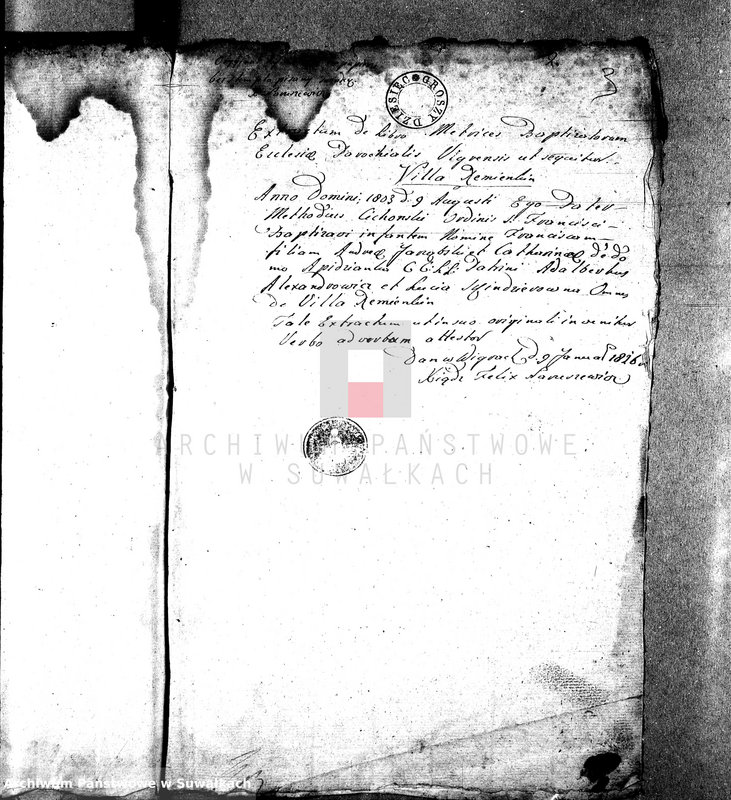 DZIESIĘC GROSZY
Extractum de Libro Metrices Baptizatorum
Eclesiæ Parochialis Vigrensis ut sequitur
Villa Remienkin
Anno Domini 1803 d. 9 Augusti Ego Pater
Methodius Cichonski Ordinis S. Francisci
Baptizavi infantem Nomine Franciscam
filiam Andreæ et Catharinæ de do
mo Patrini Adalbertus
Alexandrowicz et Lucia Omnes
de Villa Remienkin
Tale Extractum ut in suo originali invenitur
Verbo ad verbum attestor
Dan w Wigrach d. 9 1826
Xiądz Felix Naruszewicz
ARCHIWUM PAŃSTWOWE
W SUWAŁKACH
Archiwum Państwowe w Suwałkach